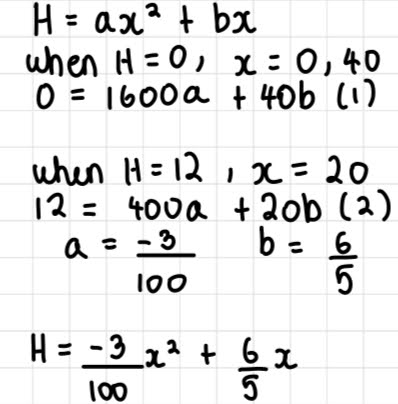 H = ax² + bx
when H = 0, x = 0, 40
0 = 1600a + 40b (1)
when H = 12, x = 20
12 = 400a + 20b (2)
a = -3/100 b = 6/5
H = -3/100 x² + 6/5 x